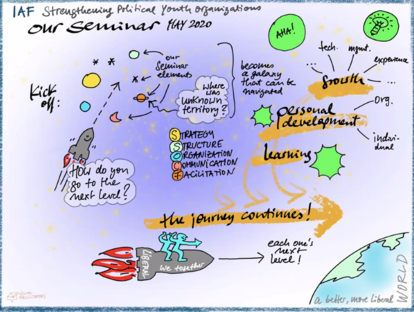 IAF Strengthening Political Youth Organizations
our Seminar MAY 2020
AHA!
Kick
off:
our
Seminar
elements
becomes
a galaxy
that can be
navigated
where was
unknown
territory?
tech.
mgmt.
experience
Growth
org.
indivi-
dual
personal
development
learning
STRATEGY
STRUCTURE
ORGANIZATION
COMMUNICATION
FACILITATION
HOW do you
go to the
next level?
the journey continues!
LIBERAL
We together
each one's
next
level!
a better, more liberal WORLD